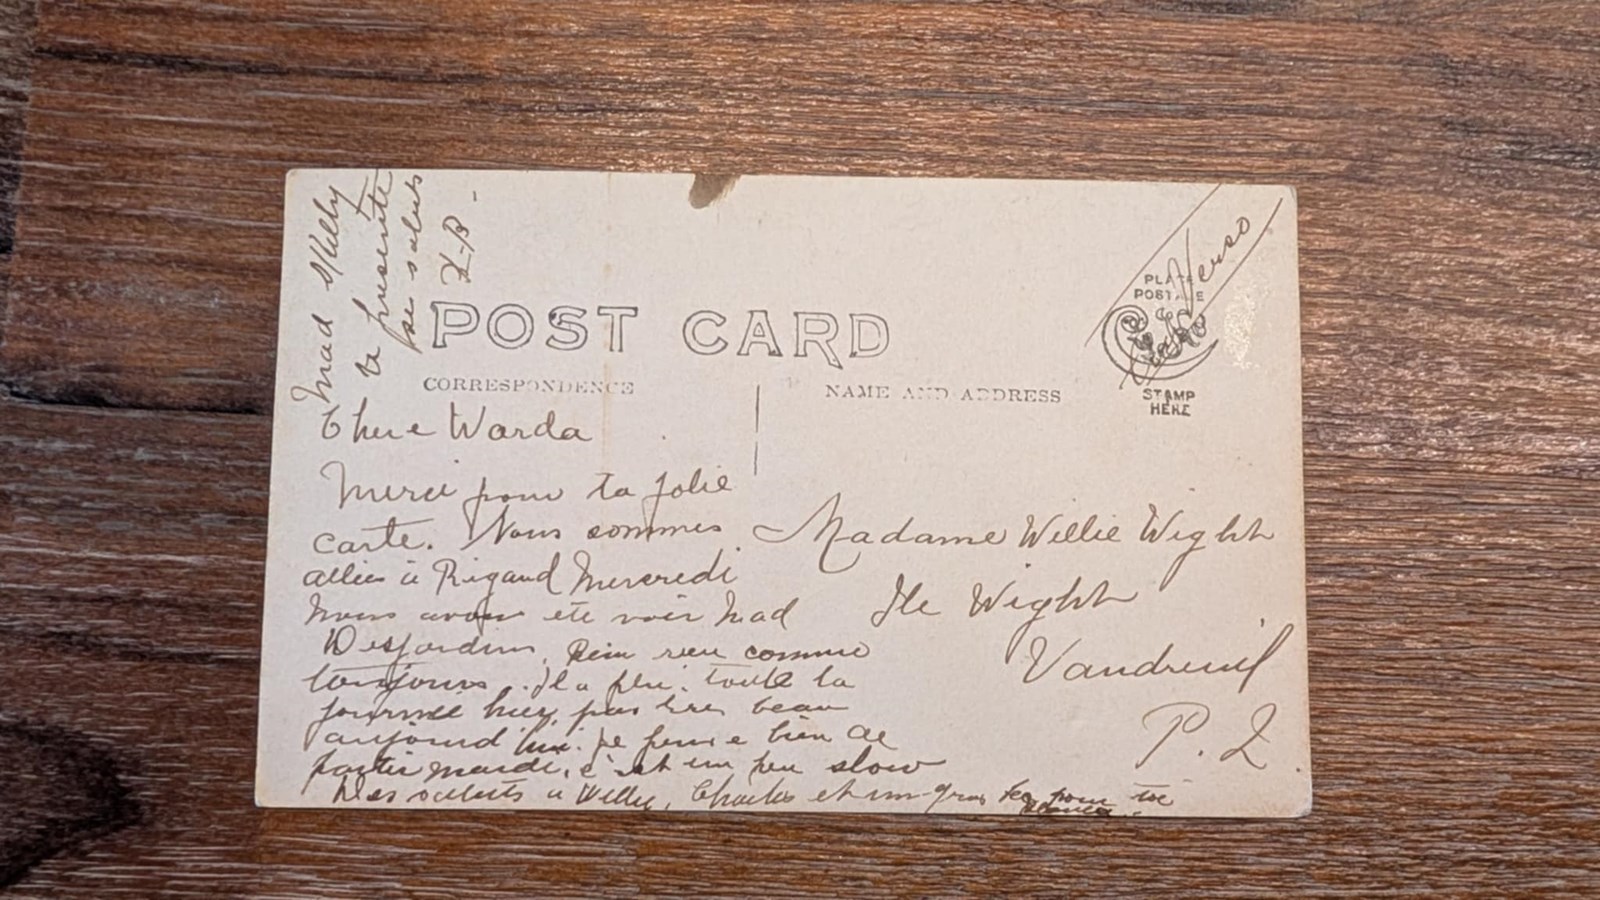 Mad Kelly
te presente
ses saluts
X-B-
Verso
POST CARD
CORRESPONDENCE
NAME AND ADDRESS
PLACE
POSTAGE
STAMP
HERE
Chere Warda
Merci pour ta jolie
carte. Nous sommes
allies a Rigaud Mercredi
nous avons ete voir Mad
Desjardins, rien comme
toujours. Il a plu toute la
journee hier, pas tres beau
aujourd'hui. Je pense bien de
partir mardi, c'est un peu slow
Mes saluts a Willy, Charles et un gros pour toi
Madame Willie Wight
Ile Wight
Vaudreuil
P. Q.